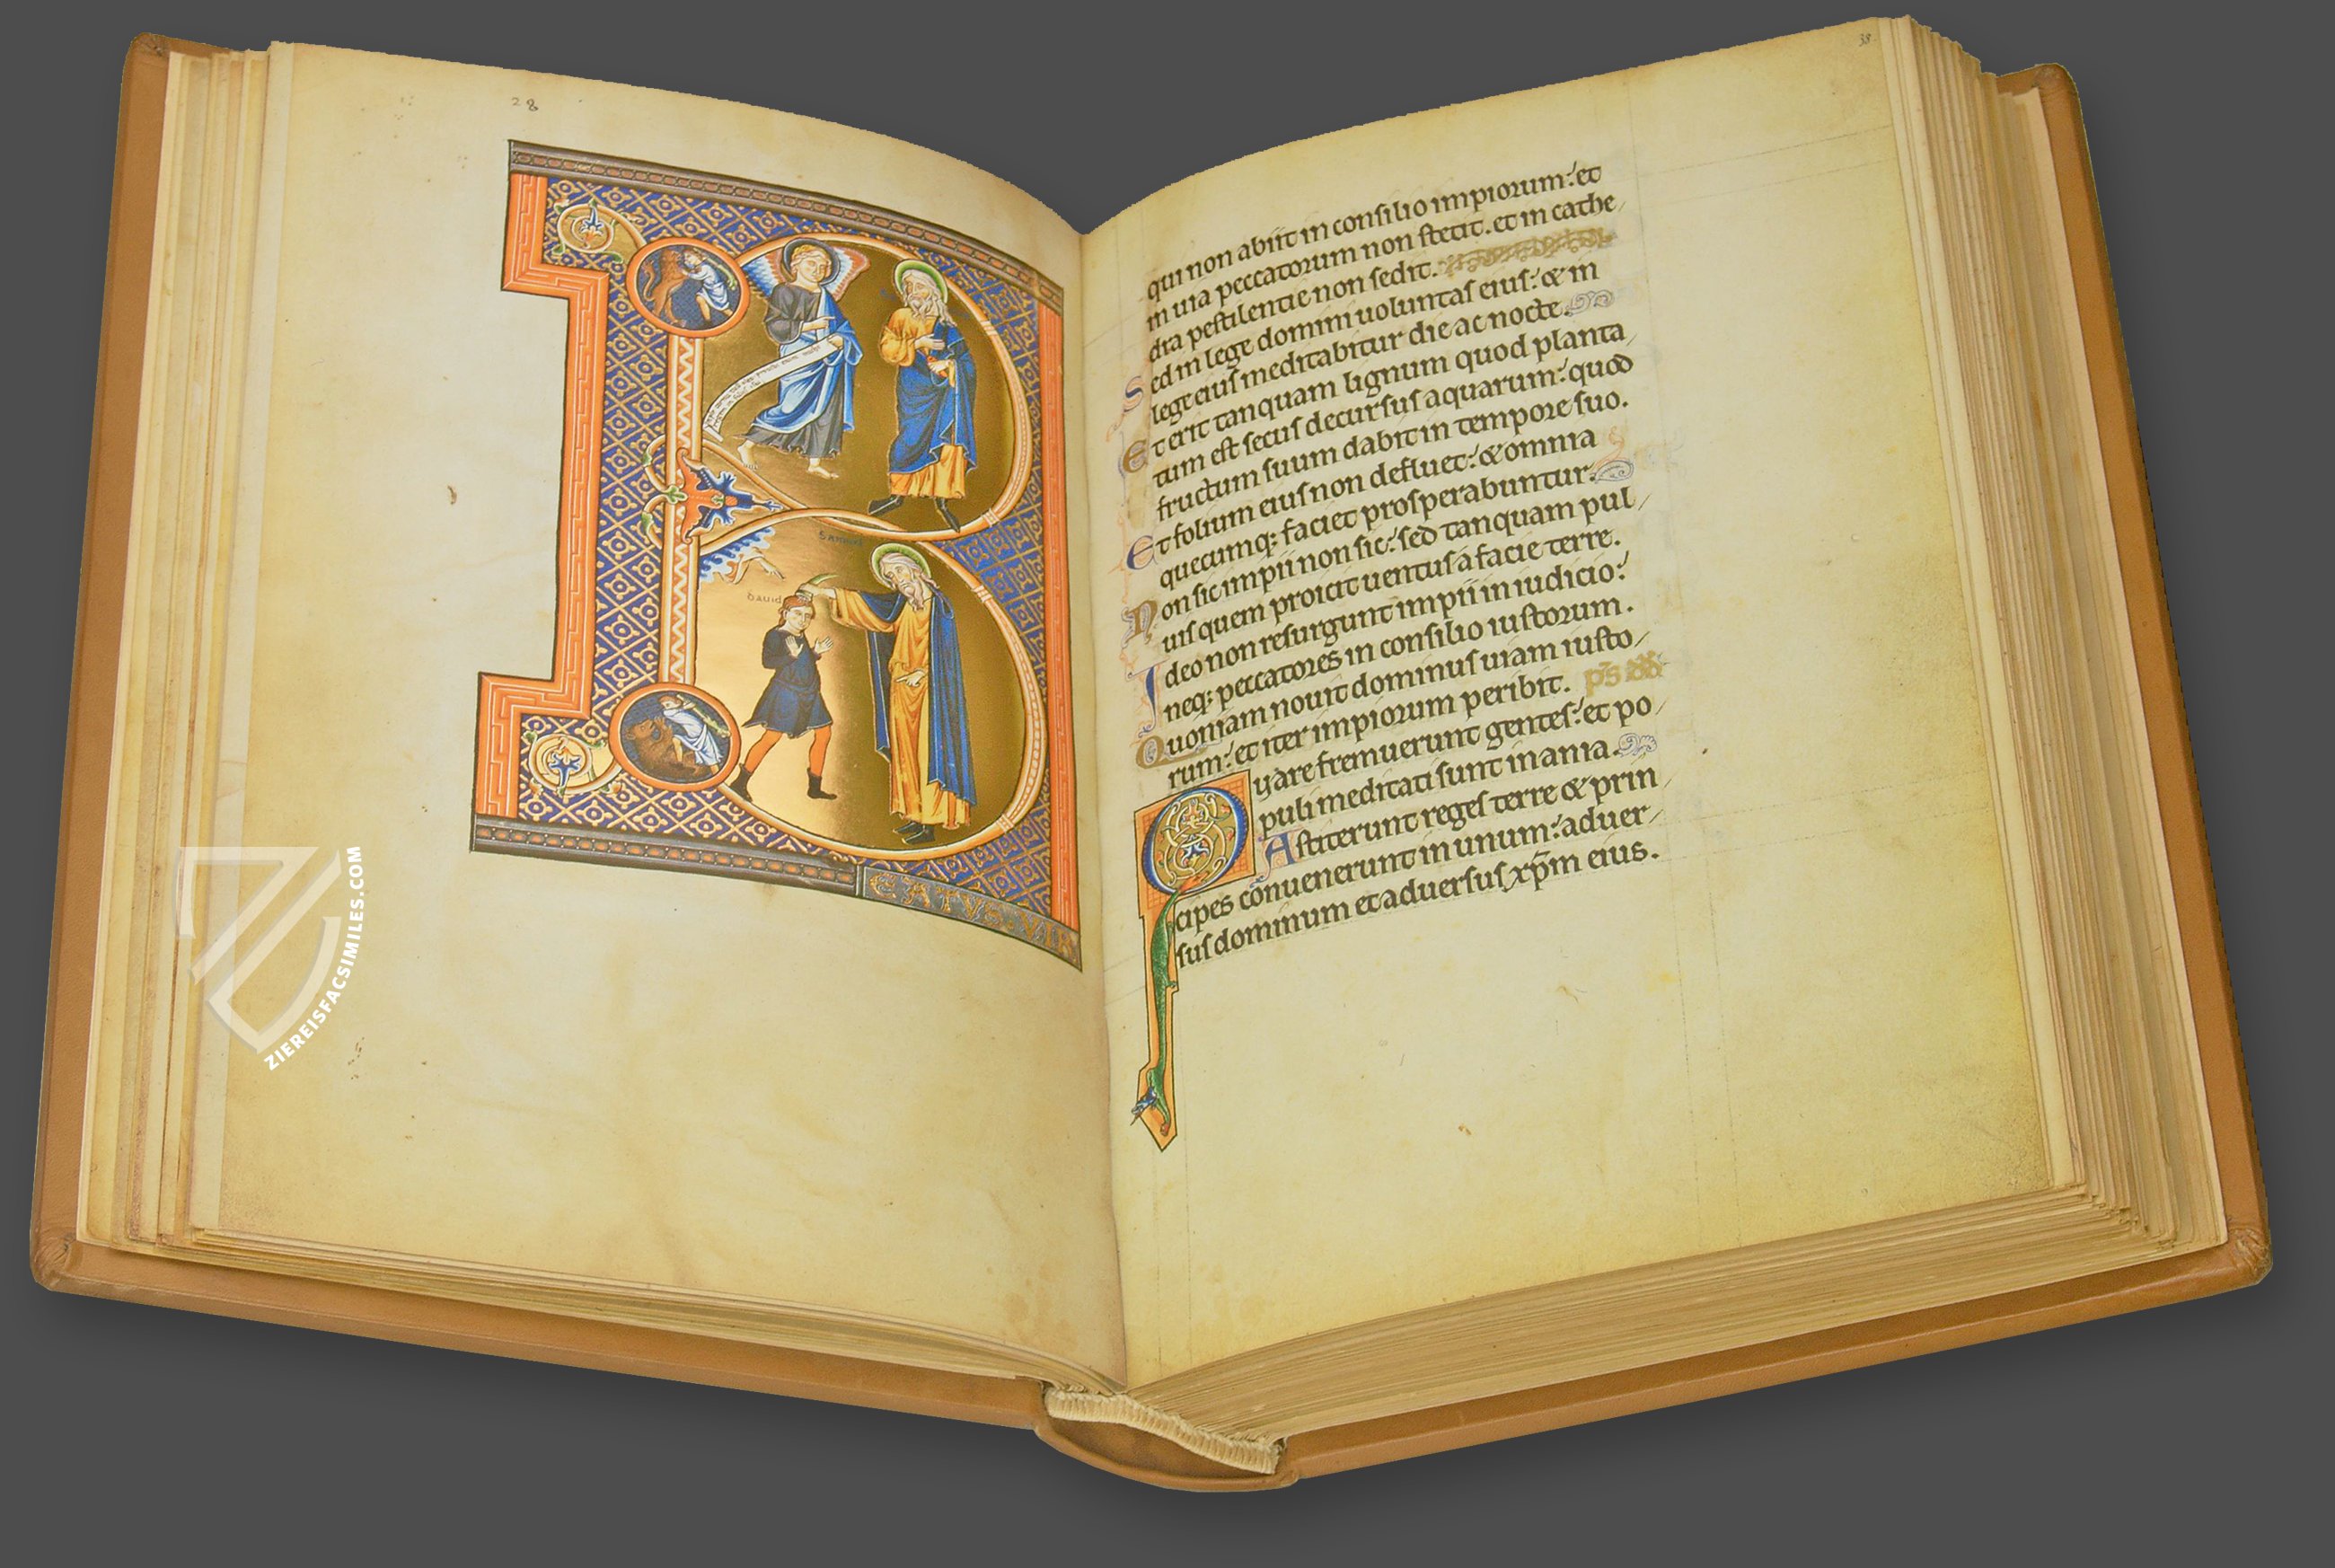 28
Samuel
David
EATVS VIR
ZIEREISFACSIMILES.COM
33
qui non abiit in consilio impiorum: et
in uia peccatorum non stetit. et in cathe
dra pestilentie non sedit.
Sed in lege domini uoluntas eius: & in
lege eius meditabitur die ac nocte.
Et erit tanquam lignum quod planta
tum est secus decursus aquarum: quod
fructum suum dabit in tempore suo.
Et folium eius non defluet: & omnia
quecumq; faciet prosperabuntur.
Non sic impii non sic: sed tanquam pul
uis quem proicit uentus a facie terre.
Ideo non resurgunt impii in iudicio:
neq; peccatores in consilio iustorum.
Quoniam nouit dominus uiam iusto
rum: et iter impiorum peribit.
Quare fremuerunt gentes: et po
puli meditati sunt inania.
Astiterunt reges terre & prin
cipes conuenerunt in unum: aduer
sus dominum et aduersus xp̄m eius.